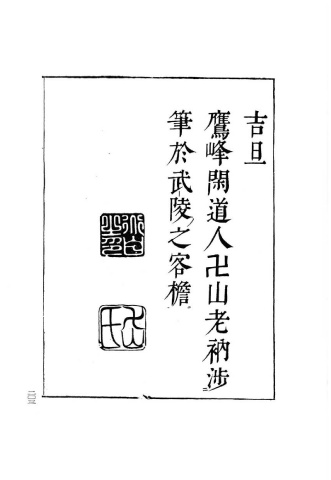 吉旦
鷹峰閑道人卍山老衲涉
筆於武陵之客檐
二〇三